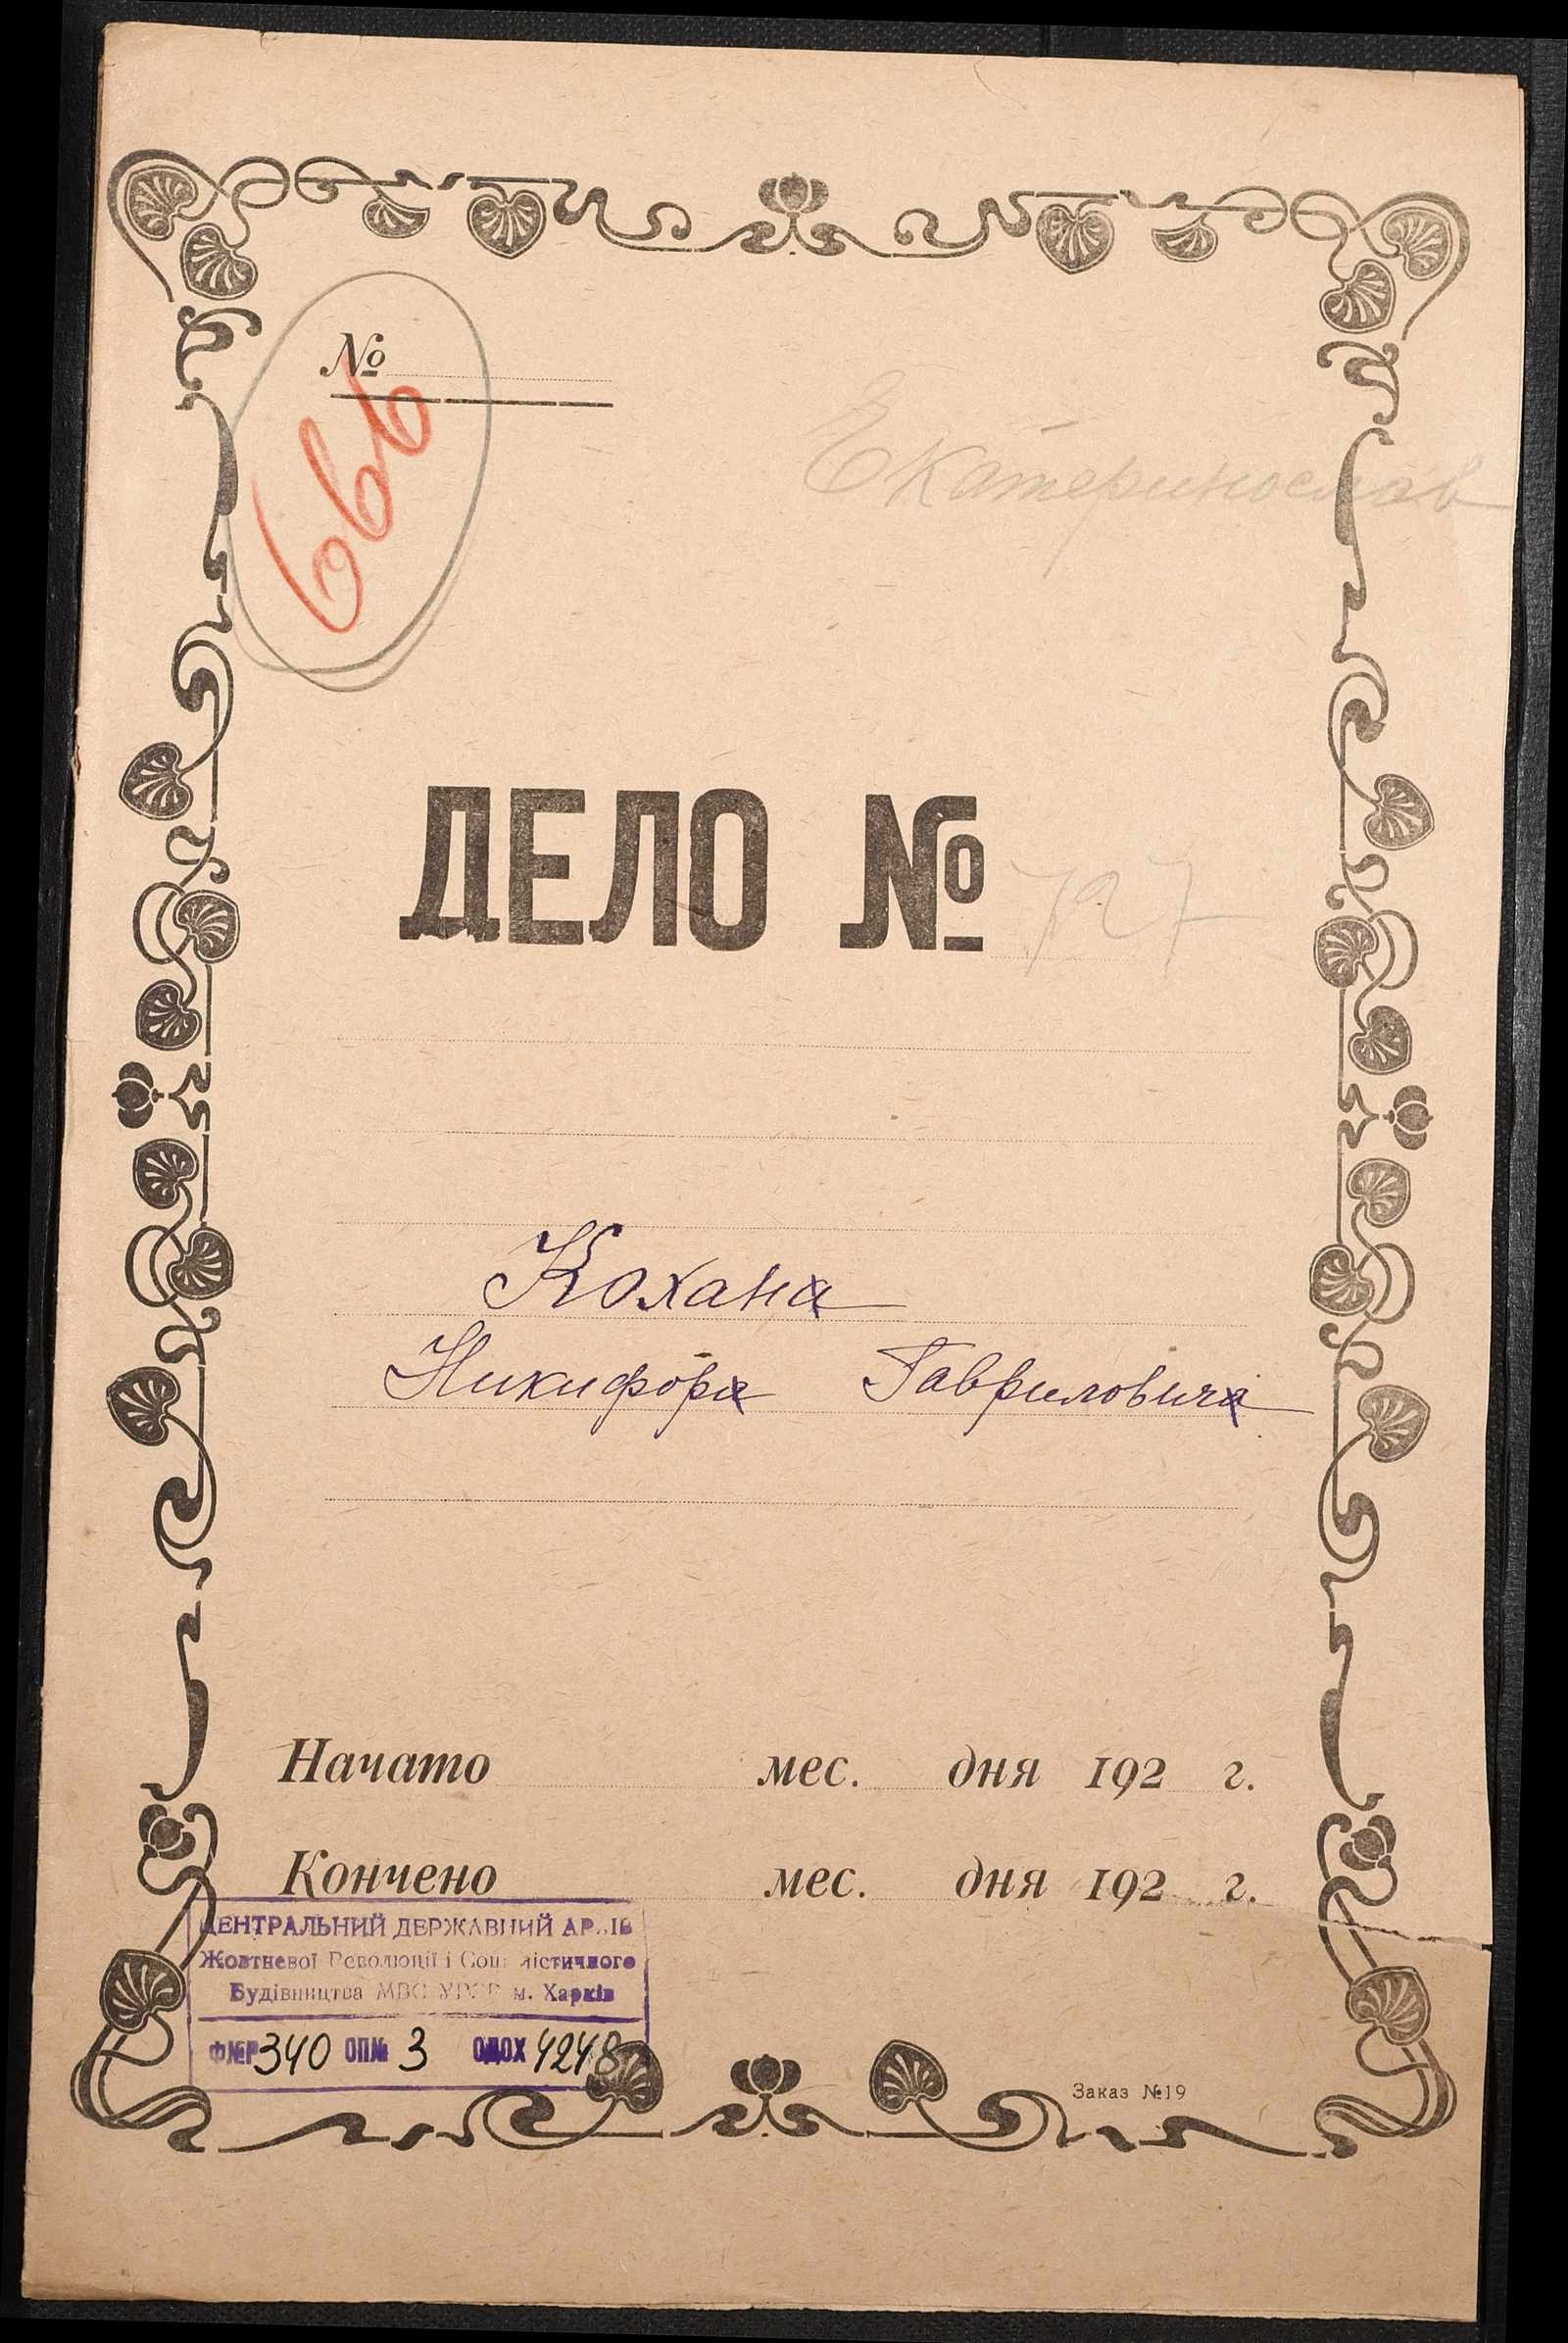 №
666
Екатеринослав
ДЕЛО № 727
Кохана
Никифора Гавриловича
Начато мес. дня 192 г.
Кончено мес. дня 192 г.
ЦЕНТРАЛЬНИЙ ДЕРЖАВНИЙ АРХІВ
Жовтневої Революції і Соціалістичного
Будівництва МВС УРСР м. Харків
Ф№Р340 ОП№ 3 ОДОХ 4248
Заказ №19